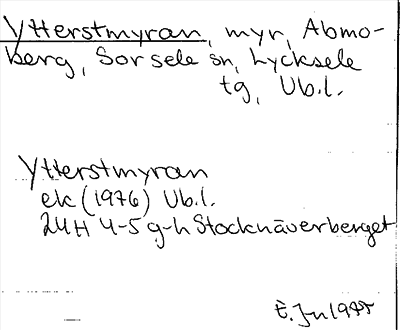 Ytterstmyran, myr, Abmo-
berg, Sorsele sn, Lycksele
tg, Vb.l.
Ytterstmyran
ek (1976) Vb.l.
24H 4-5 g-h Stocknäverberget